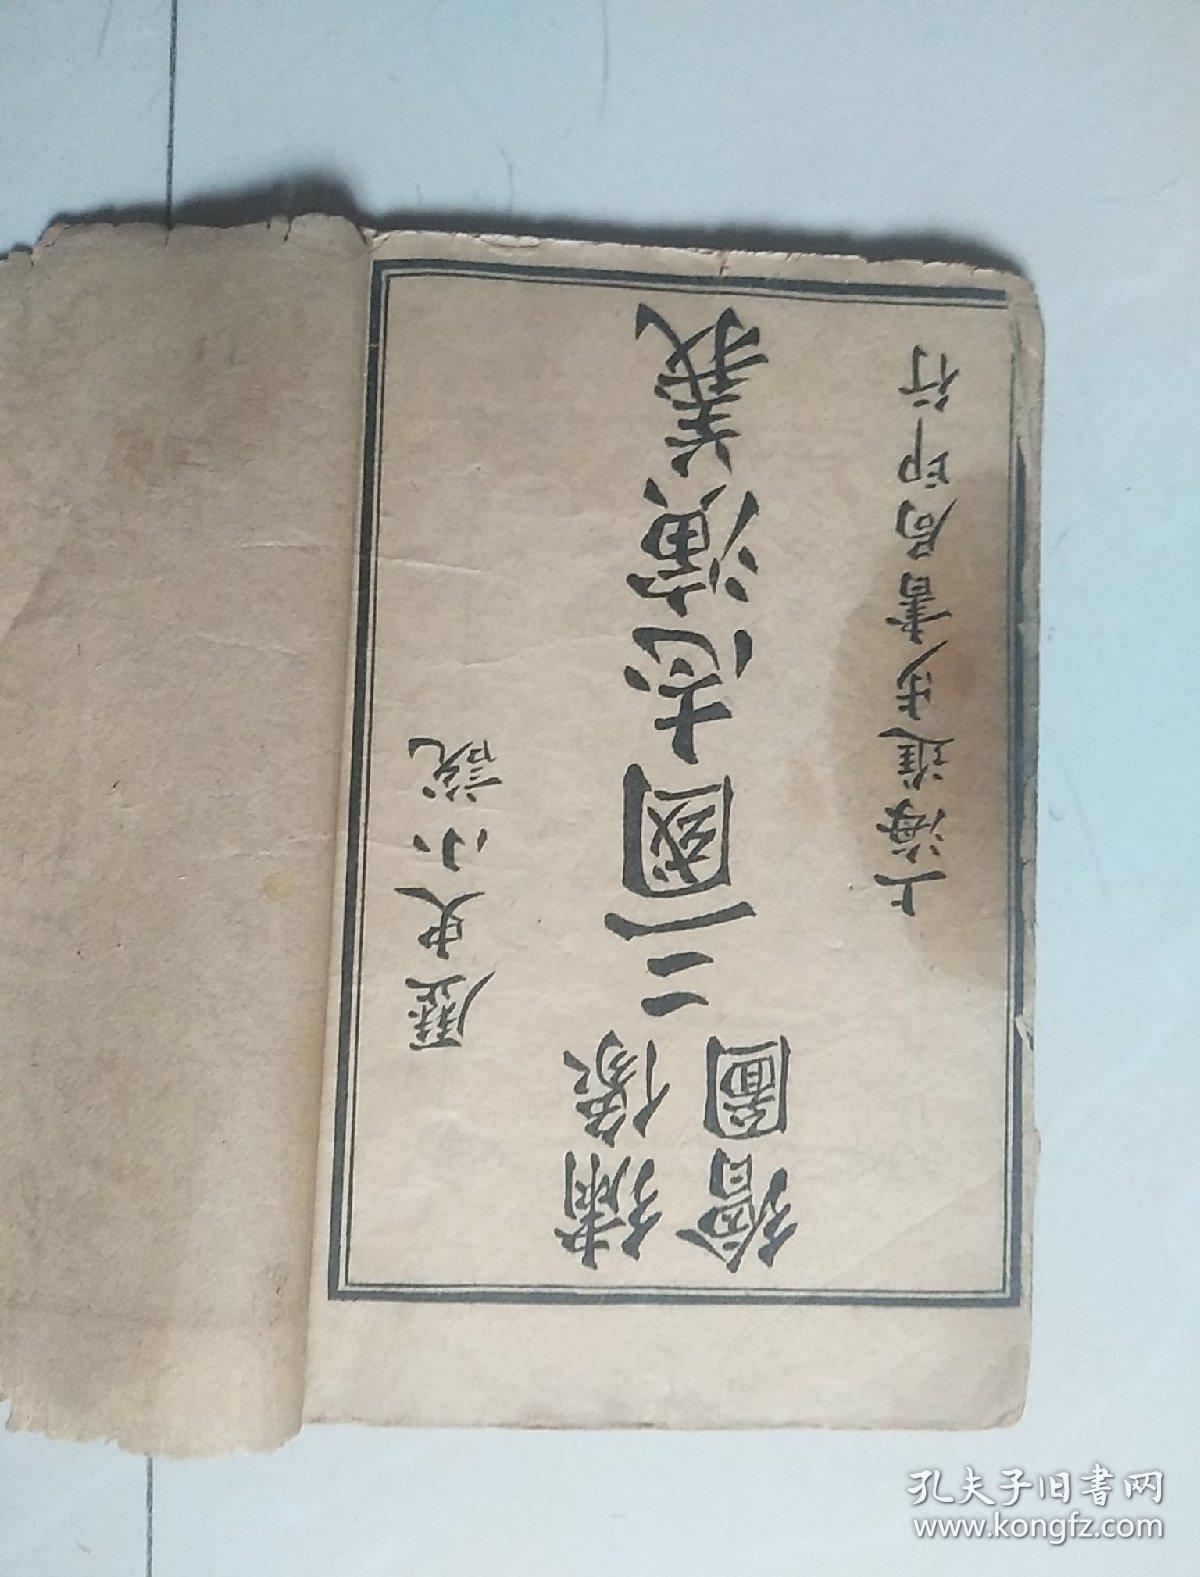 歷史小說
繡像
繪圖
三國志演義
上海進步書局印行
孔夫子旧書网
www.kongfz.com